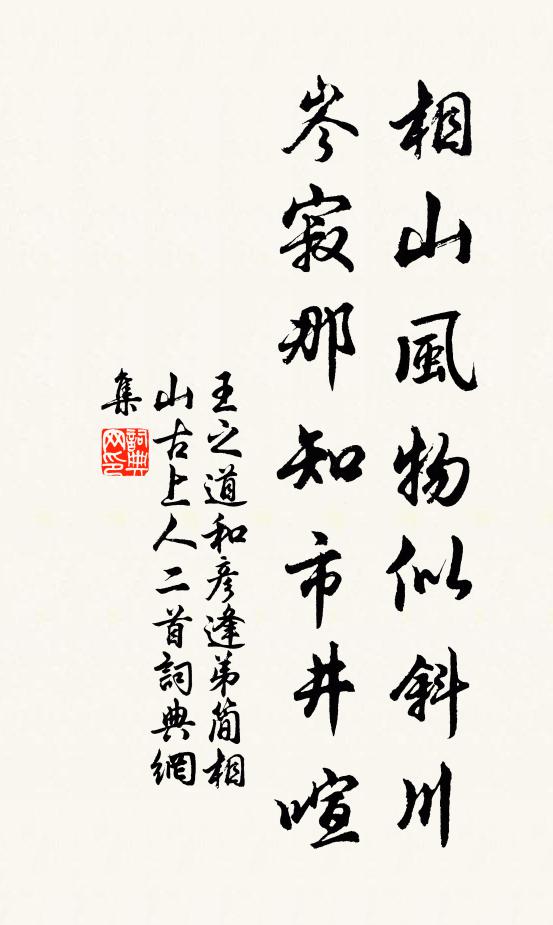 相山風物似斜川
岑寂那知市井喧
王之道和彦逢弟簡相
山古上人二首詞典網
集
詞典網印